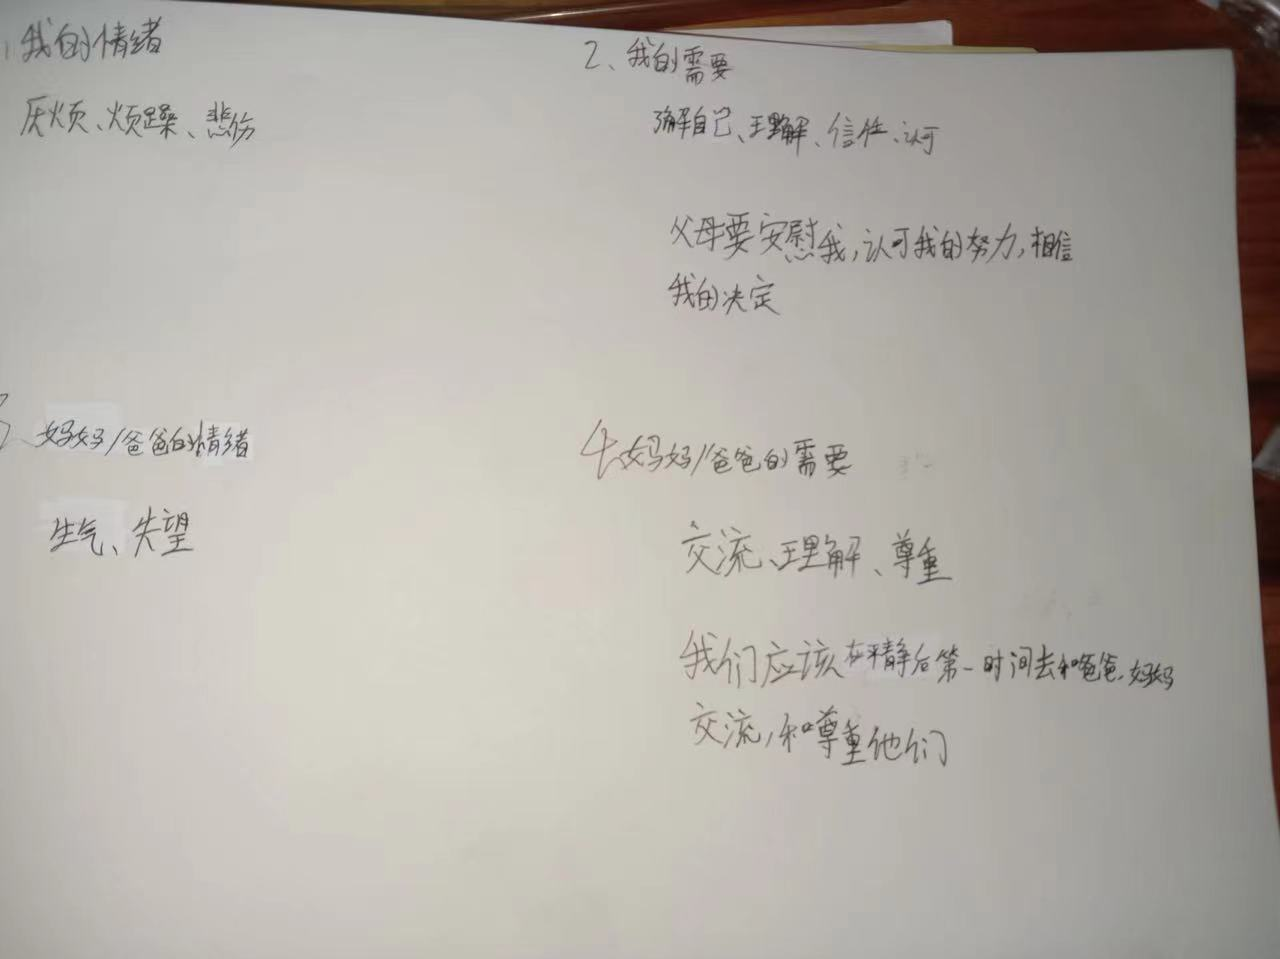 1.我的情绪
厌烦、烦躁、悲伤
2、我的需要
了解自己、理解、信任、认可
父母要安慰我,认可我的努力,相信
我的决定
3、妈妈/爸爸的情绪
生气、失望
4、妈妈/爸爸的需要
交流、理解、尊重
我们应该在平静后第一时间去和爸爸、妈妈
交流,和尊重他们